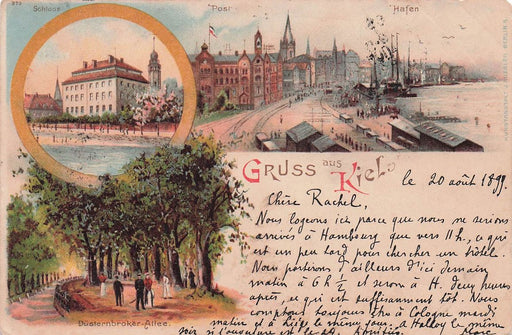 Schloss
Post
Hafen
Gruss aus Kiel
le 20 août 1899.
Chère Rachel,
Nous logeons ici parce que nous ne serions
arrivés à Hambourg que vers 11 h, ce qui
est un peu tard pour chercher un hôtel.
Nous partirons d'ailleurs d'ici demain
matin à 6 h ½ et serons à H. deux heures
après, ce qui est suffisamment tôt. Nous
comptons toujours être à Cologne mardi
matin et à Liège le même jour. à
voir si l'ouverture est
Düsternbroker-Allee.